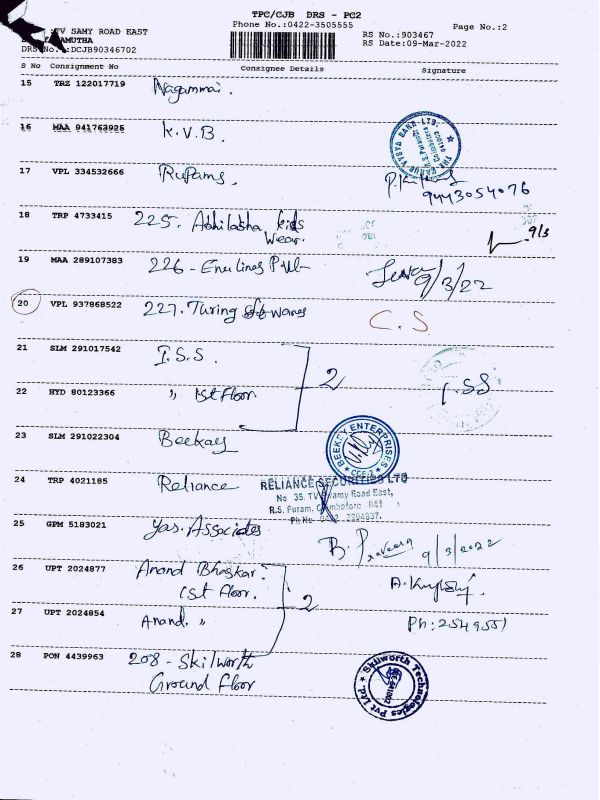 TPC/CJB DRS - PC2
Phone No.:0422-3505555
Page No.:2
TV SAMY ROAD EAST
RS No.:903467
AMUTHA
DRS No.:DCJB90346702
RS Date:09-Mar-2022
S No Consignment No Consignee Details Signature
15 TRZ 122017719 Nagammai.
16 MAA 941763925 K.V.B
17 VPL 334532666 Rupams.
9443054076
18 TRP 4733415 225. Abhilasha kids
Wear.
9/3
19 MAA 289107383 226 - Enulines Pvt
9/3/22
20 VPL 937868522 227. Turing
C.S
21 SLM 291017542 I.S.S.
2
I.SS
22 HYD 80123366 " 1st Floor
23 SLM 291022304 Beekay
BEEKEY ENTERPRISES
CBE-2
24 TRP 4021185 Reliance
RELIANCE SECURITIES LTD
No 35. TV Swamy Road East,
R.S. Puram. Coimbatore 641
25 GPM 5183021 Yas. Associates
B. Praveena 9/3/2022
26 UPT 2024877 Anand Bhaskar.
1st Floor.
2
27 UPT 2024854 Anand. "
Ph: 2549551
28 PON 4439963 208 - Skilworth
Ground Floor
Skilworth Technologies Pvt Ltd